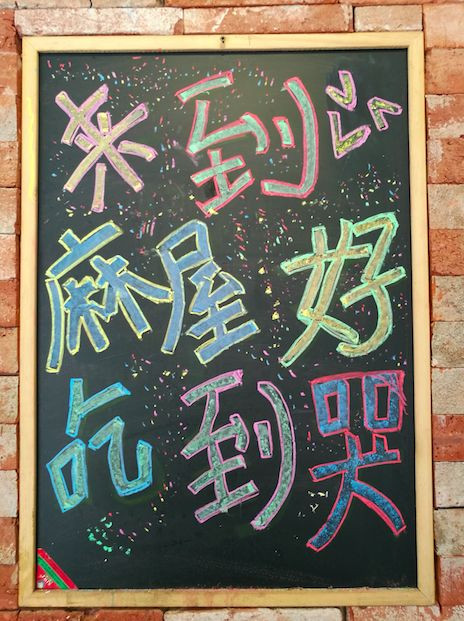 来到
麻屋好
吃到哭